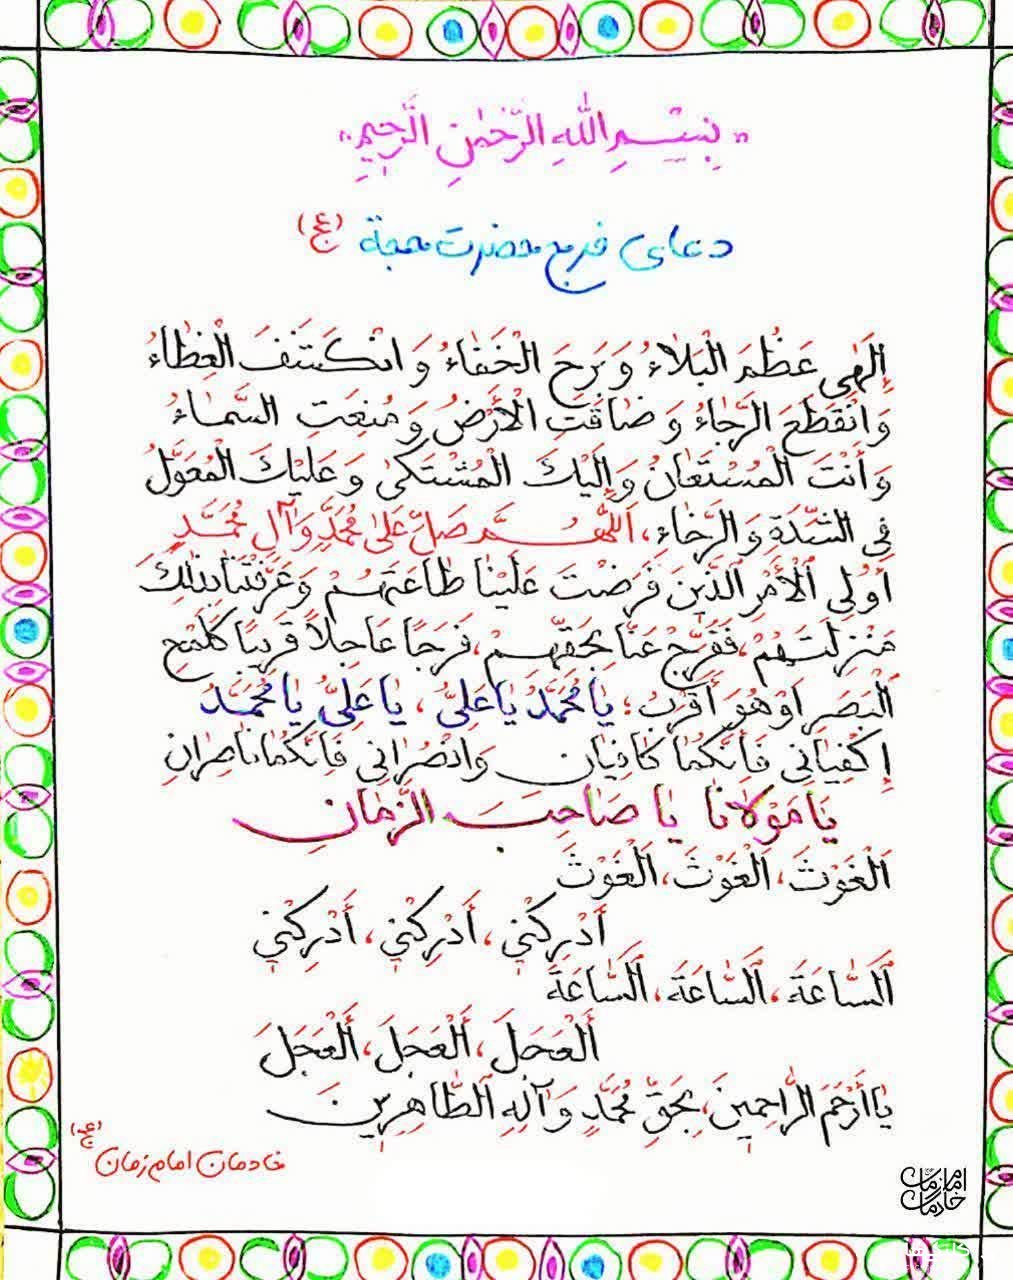 «بِسْمِ اللهِ الرَّحْمٰنِ الرَّحِيمِ»
دعای فرج حضرت حجة (عج)
إِلَهِي عَظُمَ الْبَلَاءُ وَ بَرِحَ الْخَفَاءُ وَ انْكَشَفَ الْغِطَاءُ
وَ انْقَطَعَ الرَّجَاءُ وَ ضَاقَتِ الْأَرْضُ وَ مُنِعَتِ السَّمَاءُ
وَ أَنْتَ الْمُسْتَعَانُ وَ إِلَيْكَ الْمُشْتَكَى وَ عَلَيْكَ الْمُعَوَّلُ
فِي الشِّدَّةِ وَ الرَّخَاءِ، اَللّٰهُمَّ صَلِّ عَلَى مُحَمَّدٍ وَ آلِ مُحَمَّدٍ
أُولِي الْأَمْرِ الَّذِينَ فَرَضْتَ عَلَيْنَا طَاعَتَهُمْ وَ عَرَّفْتَنَا بِذٰلِكَ
مَنْزِلَتَهُمْ، فَفَرِّجْ عَنَّا بِحَقِّهِمْ، فَرَجًا عَاجِلًا قَرِيبًا كَلَمْحِ
الْبَصَرِ أَوْ هُوَ أَقْرَبُ؛ يَا مُحَمَّدُ يَا عَلِيُّ، يَا عَلِيُّ يَا مُحَمَّدُ
إِكْفِيَانِي فَإِنَّكُمَا كَافِيَانِ وَ انْصُرَانِي فَإِنَّكُمَا نَاصِرَانِ
يَا مَوْلَانَا يَا صَاحِبَ الزَّمَانِ
اَلْغَوْثَ، اَلْغَوْثَ، اَلْغَوْثَ
أَدْرِكْنِي، أَدْرِكْنِي، أَدْرِكْنِي
اَلسَّاعَةَ، اَلسَّاعَةَ، اَلسَّاعَةَ
أَلْعَجَلَ، أَلْعَجَلَ، أَلْعَجَلَ
يَا أَرْحَمَ الرَّاحِمِينَ، بِحَقِّ مُحَمَّدٍ وَ آلِهِ الطَّاهِرِينَ
خادمان امام زمان (عج)
امام زمان
خادمان